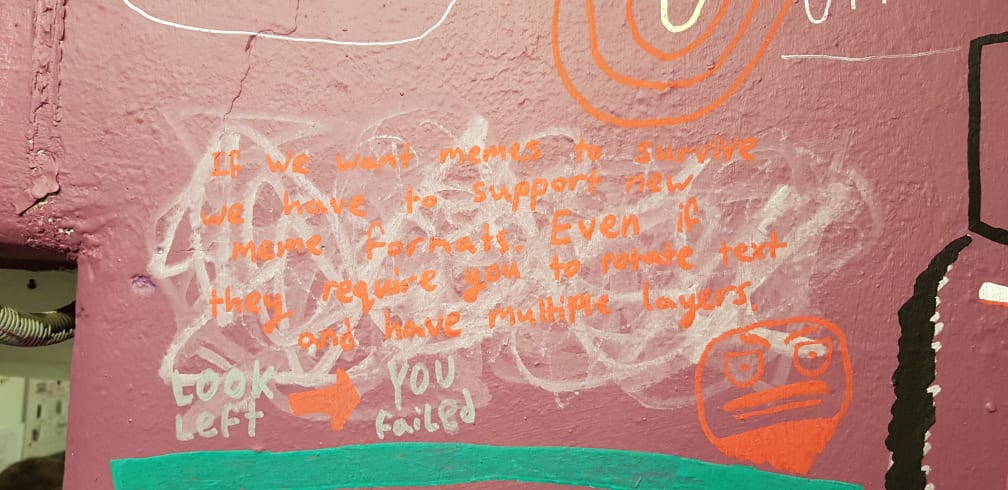 If we want memes to survive
we have to support new
meme formats. Even if
they require you to rotate text
and have multiple layers.
LOOK YOU
LEFT failed